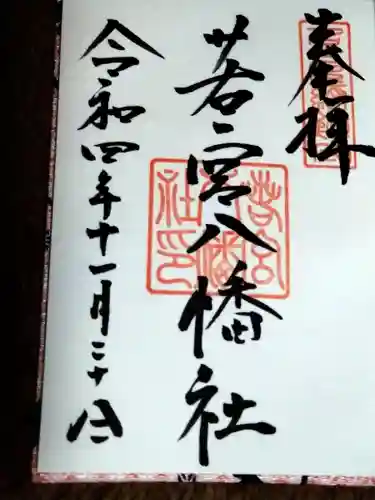 奉拝
若宮八幡社
令和四年十一月二十八日
若宮
八幡
社印